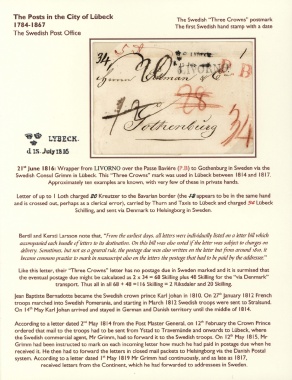 The Posts in the City of Lübeck
1784-1867
The Swedish Post Office
The Swedish "Three Crowns" postmark
The first Swedish hand stamp with a date
LIVORNO
Gothenburg
LYBECK.
21st June 1816: Wrapper from LIVORNO over the Passe Bavière (7.B) to Gothenburg in Sweden via the
Swedish Consul Grimm in Lübeck. This "Three Crowns" mark was used in Lübeck between 1814 and 1817.
Approximately ten examples are known, with very few of these in private hands.
Letter of up to 1 Loth charged 20 Kreutzer to the Bavarian border (the 18 appears to be in the same hand
and is crossed out, perhaps as a clerical error), carried by Thurn and Taxis to Lübeck and charged 34 Lübeck
Schilling, and sent via Denmark to Helsingborg in Sweden.
Bertil and Kersti Larsson note that, "From the earliest days all letters were individually listed on a letter bill which
accompanied each bundle of letters to its destination. On this bill was also noted if the letter was subject to charges on
delivery. Sometimes, but not as a general rule, the postage due was also written on the letter but from around 1800, it
became common practice to mark in manuscript due on the letters the postage that had to be paid by the addressee."
Like this letter, their "Three Crowns" letter has no postage due in Sweden marked and it is surmised that
the eventual postage due might be calculated as 2 x 34 = 68 Skilling plus 48 Skilling for the "via Denmark"
transport. Thus all in all 68 + 48 = 116 Skilling = 2 Riksdaler and 20 Skilling.
Jean Baptiste Bernadotte became the Swedish crown prince Karl Johan in 1810. On 27th January 1812 French
troops marched into Swedish Pomerania, and starting in March 1813 Swedish troops were sent to Stralsund.
On 16th May Karl Johan arrived and stayed in German and Danish territory until the middle of 1814.
According to a letter dated 2nd May 1814 from the Post Master General, on 12th February the Crown Prince
ordered that mail to the troops had to be sent from Ystad to Travemünde and onwards to Lübeck, where the
Swedish commercial agent, Mr Grimm, had to forward it to the Swedish troops. On 12th May 1815, Mr
Grimm had been instructed to mark on each incoming letter how much he had paid in postage due when he
received it. He then had to forward the letters in closed mail packets to Helsingborg via the Danish Postal
system. According to a letter dated 1st May 1819 Mr Grimm had continuously, and as late as 1817,
received letters from the Continent, which he had forwarded to addressees in Sweden.